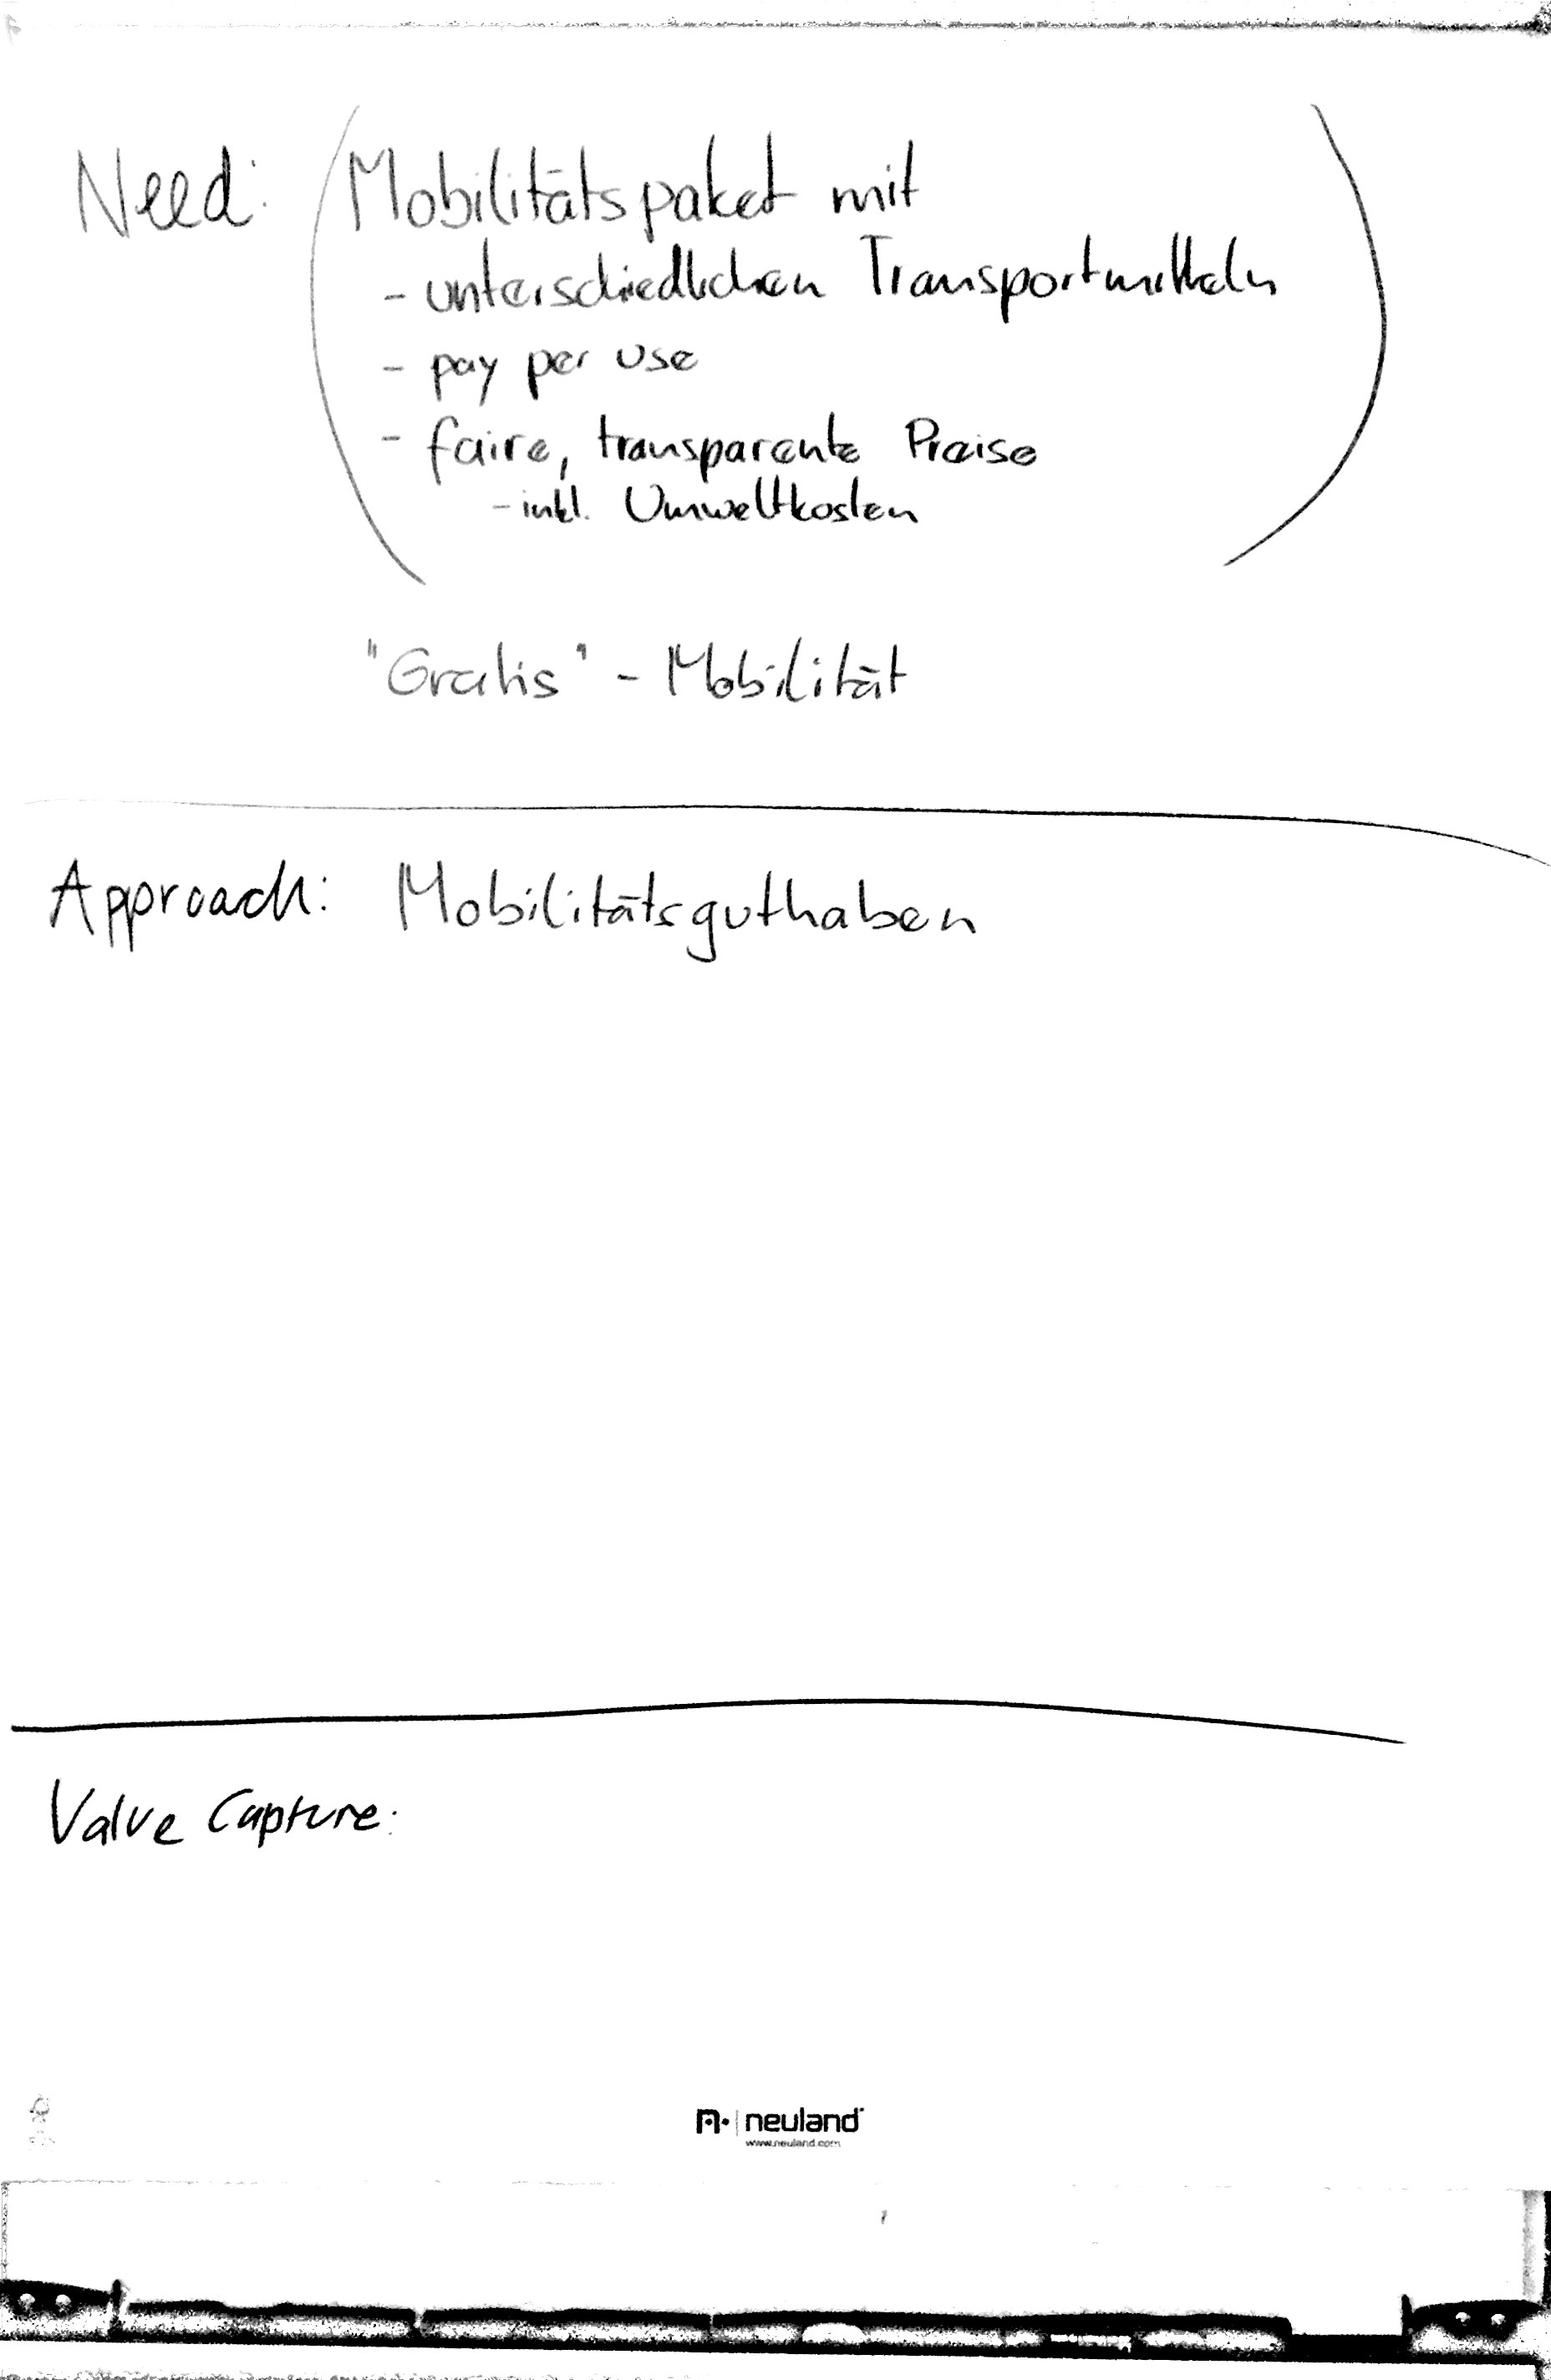 Need: (Mobilitätspaket mit
- unterschiedlichen Transportmitteln
- pay per use
- faire, transparente Preise
- inkl. Umweltkosten)
"Gratis" - Mobilität
Approach: Mobilitätsguthaben
Value Capture:
neuland
www.neuland.com